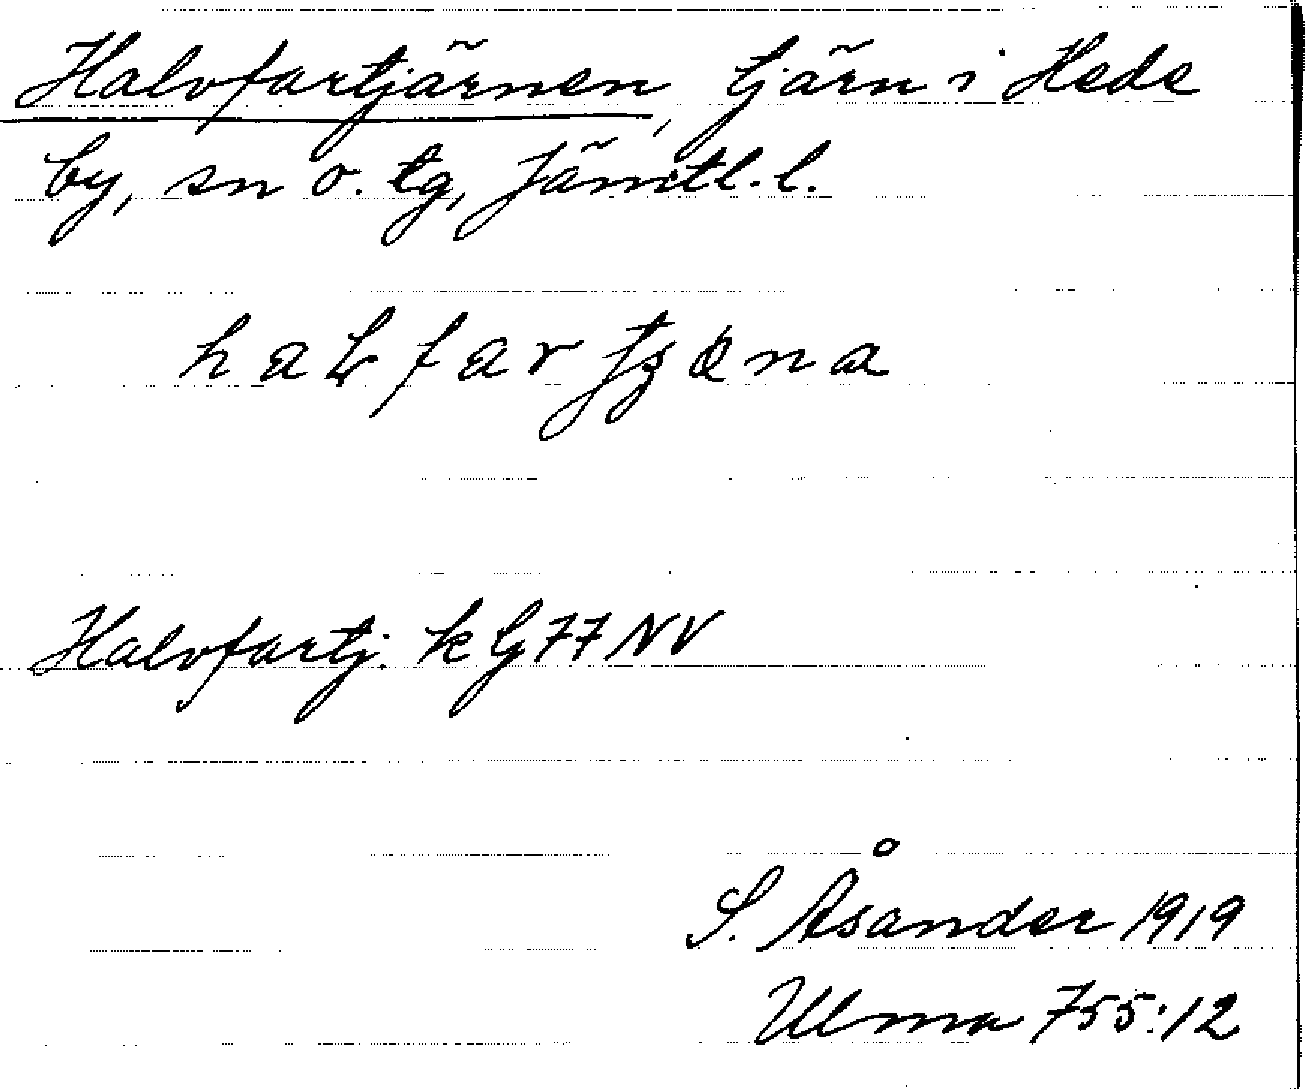 Halvfartjärnen, tjärn i Hede
by, sn o. tg, Jämtl. l.
Halvfartj. k G 77 NV
S. Åsander 1919
Ulma 755:12